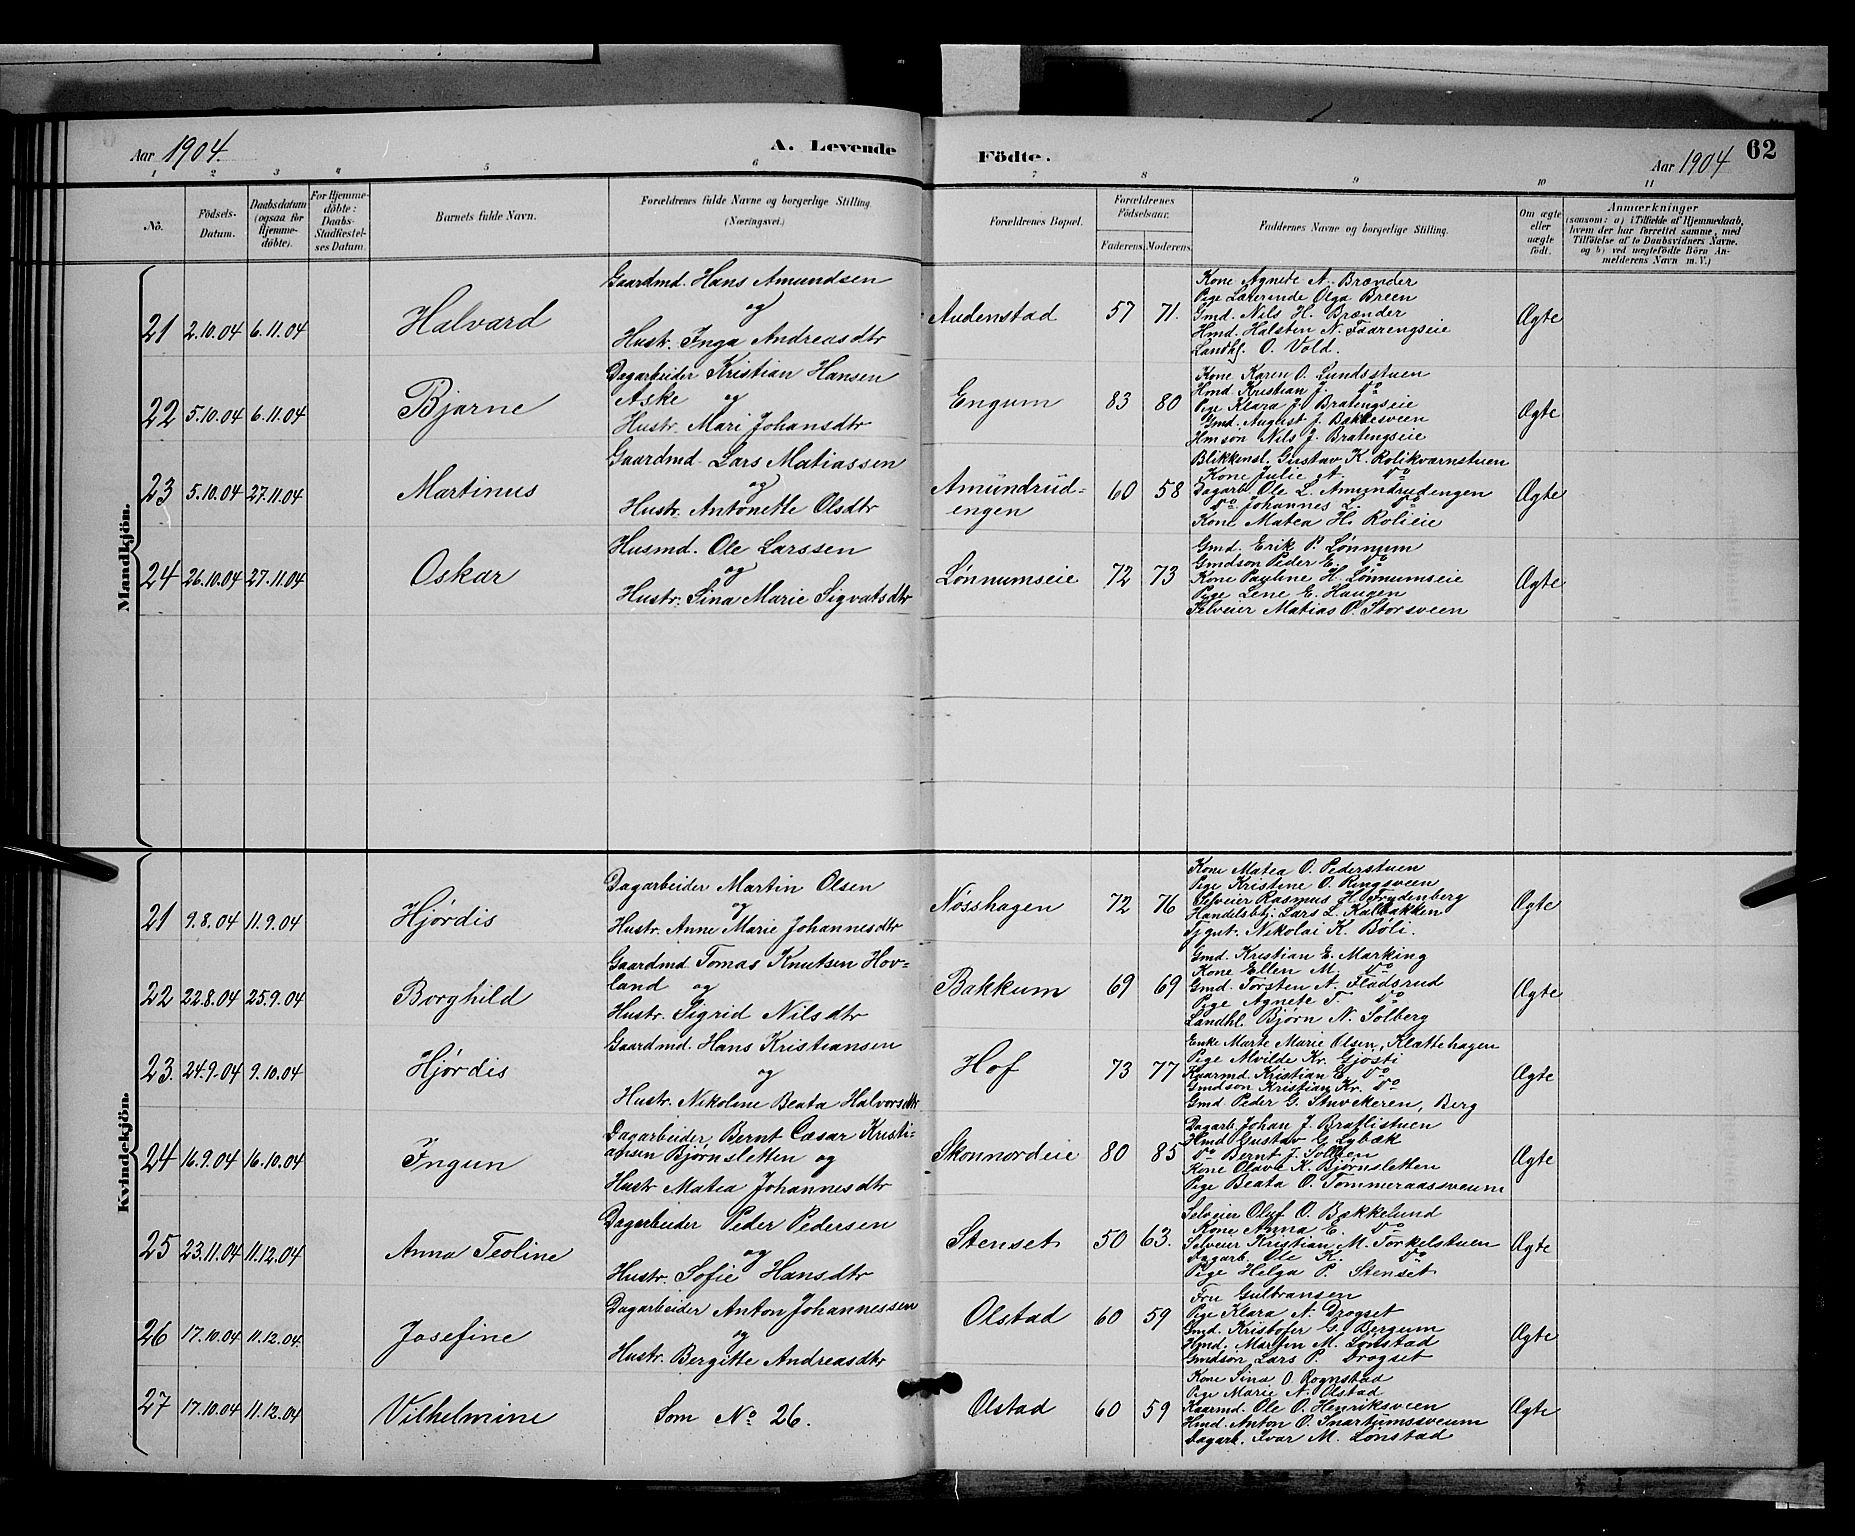 Aar 1904. A. Levende Födte. Aar 1904 62
1 2 3 4 5 6 7 8 9 10 11
Nö. Födsels-Datum. Daabsdatum (ogsaa for Hjemmedöbte). For Hjemmedöbte: Daabs-Stadfestelses Datum. Barnets fulde Navn. Forældrenes fulde Navne og borgerlige Stilling (Næringsvei.) Forældrenes Bopæl. Forældrenes Födselsaar. Faderens. Moderens. Faddernes Navne og borgerlige Stilling. Om ægte eller uægte födt. Anmærkninger (saasom: a) i Tilfælde af Hjemmedaab, hvem der har forrettet samme, med Tilföielse af to Daabsvidners Navne, og b) ved uægtefödte Börn Anmelderens Navn m. V.)
Mandkjön.
21 2.10.04 6.11.04 Halvard
Gaardmd. Hans Amundsen
og
Hustr. Inga Andreasdtr
Audenstad 57 71.
Kone Agnete A. Brænder
Pige Lærerinde Olga Breen
Gmd. Nils H. Brænder
Hmd. Halsten N. Faarengseie
Landhl. O. Vold.
Ægte
22 5.10.04 6.11.04 Bjarne
Dagarbeider Kristian Hansen
Aske og
Hustr. Mari Johansdtr
Engum 83 80
Kone Karen O. Lundsstuen
Hmd. Kristian J. do
Pige Klara J. Bratengseie
Gmd. August J. Bakkesveen
Hmson Nils J. Bratengseie
Ægte
23 5.10.04 27.11.04 Martinus
Gaardmd. Lars Matiassen
og
Hustr. Antonette Olsdtr
Amundrud-
engen 60 58
Blikkensl. Gustav K. Rolikværnstuen
Kone Julie A. do
Dagarb. Ole L. Amundrudengen
do Johannes L. do
Kone Matea H. Rolieie
Ægte
24 26.10.04 27.11.04 Oskar
Husmd. Ole Larssen
og
Hustr. Sina Marie Sigvatsdtr
Lønnumseie 72 73
Gmd. Erik P. Lønnum
Gmdson Peder E. do
Kone Pauline H. Lønnumseie
Pige Lene E. Haugen
Selveier Matias O. Storsveen
Ægte
Kvindekjön.
21 9.8.04 11.9.04 Hjørdis
Dagarbeider Martin Olsen
og
Hustr. Anne Marie Johannesdtr
Nøsshagen 72 76
Kone Matea O. Pederstuen
Pige Kristine O. Ringsveen
Selveier Rasmus H. Frydenberg
Handelsbtj. Lars L. Kalbakken
Tjgut. Nikolai K. Bøli.
Ægte
22 22.8.04 25.9.04 Borghild
Gaardmd. Tomas Knutsen Hov-
land og
Hustr. Sigrid Nilsdtr
Bakkum 69 69
Gmd. Kristian E. Marking
Kone Ellen M. do
Gmd. Torsten A. Fladsrud
Pige Agnete T. do
Landhl. Bjørn N. Solberg
Ægte
23. 24.9.04 9.10.04 Hjørdis
Gaardmd. Hans Kristiansen
og
Hustr. Nikoline Beata Halvorsdtr
Hof 73 77
Enke Marte Marie Olsen, Klattehagen
Pige Alvilde Kr. Gjøsti
Kaarmd. Kristian E. do
Gmdson Kristian Kr. do
Gmd. Peder G. Stuvekeren, Berg
Ægte
24 16.9.04 16.10.04 Ingun
Dagarbeider Bernt Cæsar Kristi-
ansen Bjørnsletten og
Hustr Matea Johannesdtr
Skonnordeie 80 85
Dagarb. Johan J. Braflistuen
Hmd. Gustav G. Lybæk
do Bernt J. Solløen
Kone Olave K. Bjørnsletten
Pige Beata O. Tommeraassveum
Ægte
25 23.11.04 11.12.04 Anna Teoline
Dagarbeider Peder Pedersen
og
Hustr. Sofie Hansdtr
Stenset 50 63.
Selveier Oluf O. Bækkelund
Kone Anna E. do
Selveier Kristian M. Torkelstuen
Dagarb. Ole K. do
Pige Helga P. Stenset
Ægte
26 17.10.04 11.12.04. Josefine
Dagarbeider Anton Johannessen
og
Hustr. Bergitte Andreasdtr
Olstad 60 59
Fru Gulbransen
Pige Klara A. Drogset
Gmd. Kristofer G. Bergum
Hmd. Martin M. Lønstad
Gmdson Lars P. Drogset
Ægte
27 17.10.04 11.12.04 Vilhelmine
Som No 26.
Olstad 60 59
Kone Sina O Rognstad
Pige Marie A. Olstad
Kaarmd. Ole O. Henriksveen
Hmd. Anton O. Snartumssveum
Dagarb. Ivar M. Lønstad
Ægte